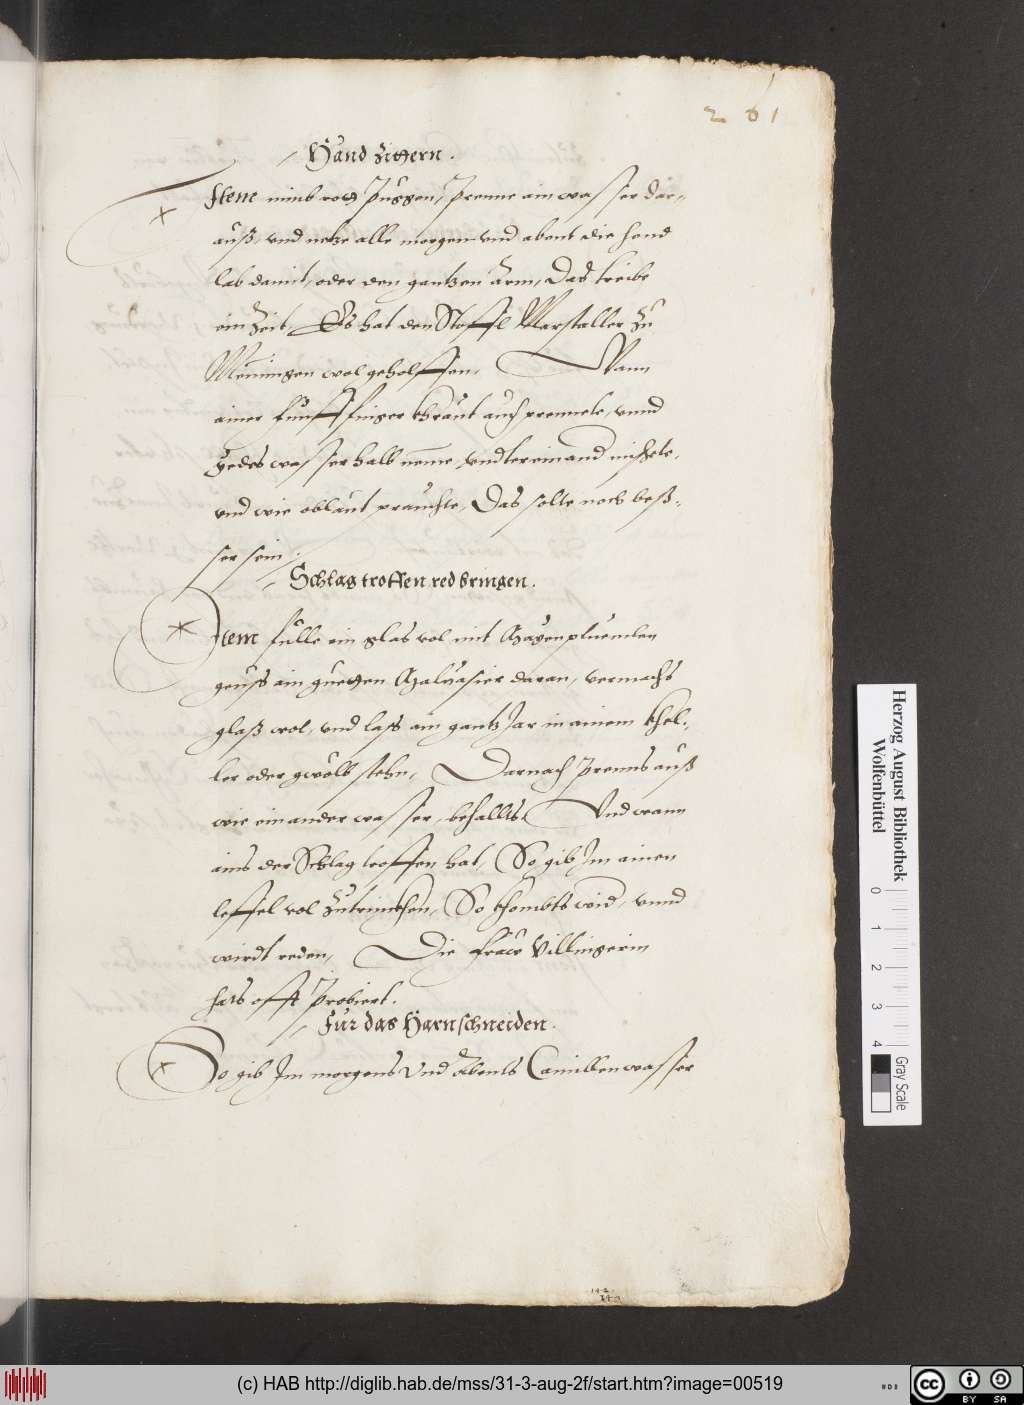 261
Hand zittern.
Item nimb rott Puggen, Prenne ain wasser dar-
auß, vnd netze alle morgen vnd abent die hend
lab damit, oder den gantzen Arm, Das treibe
ein Zeit, Es hat den Stoffl Marstaller zu
Memingen wol geholffen. Wann
ainer Funff finger khraut auch prennete, vnnd
yedes wasser halb neme, vndtereinand mischete,
vnd wie oblaut prauchte, Das solte noch beß-
ser sein.
Schlag troffen red bringen.
Item fulle ein glas vol mit Mayenpluemlen
geuss ain guetten Malvasier daran, vermachs
glaß wol, vnd lass ain gantz Jar in ainem khel-
ler oder gwölb stehn, Darnach Prenns auß
wie ein ander wasser, behallts. Vnd wann
ains der Schlag troffen hat, So gib Im ainen
leffel vol zutrinckhen, So khombts wid, vnnd
wirdt reden, Die Fraw Villingerin
hats offt Probiert.
Fur das Harnschneiden.
So gib Im morgens Vnd Abents Camillenwasser
Herzog August Bibliothek
Wolfenbüttel
0 1 2 3 4
Gray Scale
(c) HAB http://diglib.hab.de/mss/31-3-aug-2f/start.htm?image=00519
cc BY SA